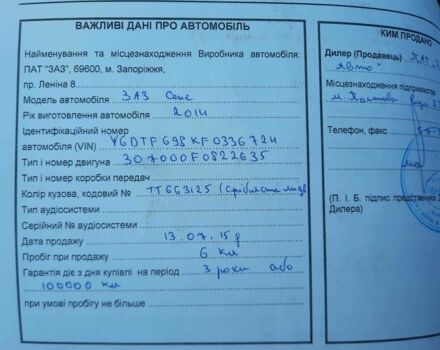 ВАЖЛИВІ ДАНІ ПРО АВТОМОБІЛЬ
Найменування та місцезнаходження Виробника автомобіля:
ПАТ "ЗАЗ", 69600, м. Запоріжжя,
пр. Леніна 8
Модель автомобіля ЗАЗ Сенс
Рік виготовлення автомобіля 2014
Ідентифікаційний номер
автомобіля (VIN) Y6DTF698KF0336724
Тип і номер двигуна 307000F0822635
Тип і номер коробки передач
Колір кузова, кодовий № TT663125 (сріблясто
Тип аудіосистеми
Серійний № аудіосистеми
Дата продажу 13.07.15р
Пробіг при продажу 6 км
Гарантія діє з дня купівлі на період 3 роки або
100000 км
при умові пробігу не більше
КИМ ПРОДАНО
Дилер (Продавець) ПАТ
Авто"
Місцезнаходження підприємства
м. Полтова
Телефон, факс
(П. І. Б. підпис представника
Дилера)